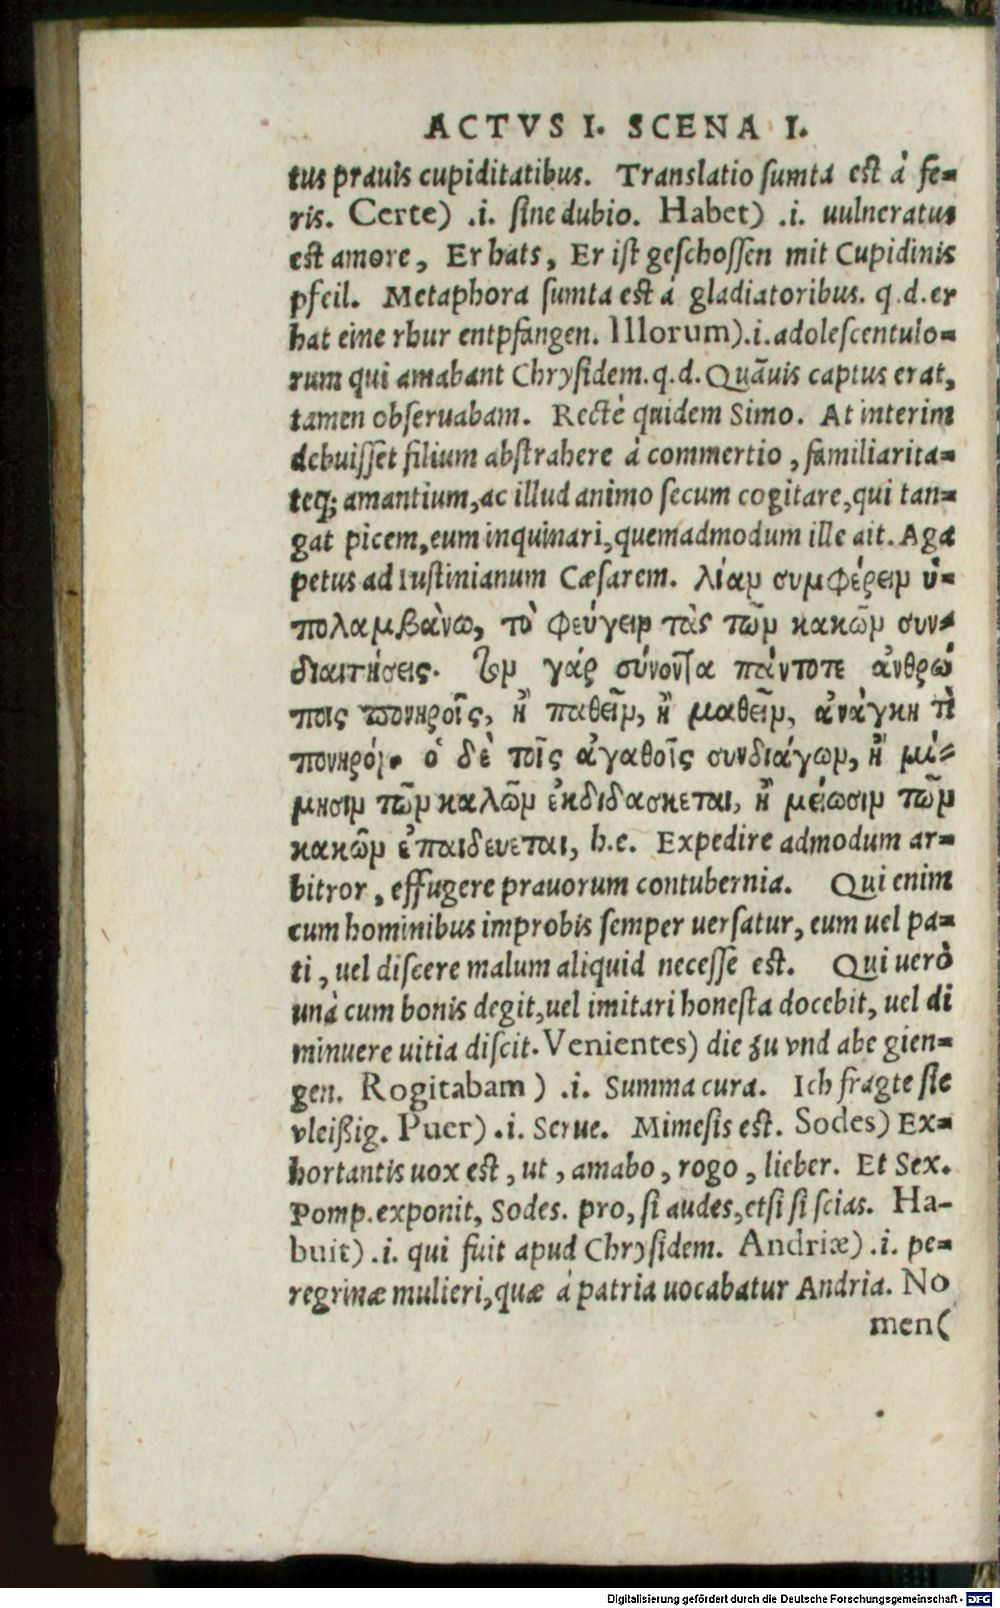 ACTVS I. SCENA I.
tus prauis cupiditatibus. Translatio sumta est à fe-
ris. Certe) .i. sine dubio. Habet) .i. uulneratus
est amore, Er hats, Er ist geschossen mit Cupidinis
pfeil. Metaphora sumta est à gladiatoribus. q.d. er
hat eine rhur entpfangen. Illorum).i. adolescentulo-
rum qui amabant Chrysidem. q.d. Quãuis captus erat,
tamen obseruabam. Rectè quidem Simo. At interim
debuisset filium abstrahere à commertio, familiarita-
teq; amantium, ac illud animo secum cogitare, qui tan-
gat picem, eum inquinari, quemadmodum ille ait. Aga
petus ad Iustinianum Cæsarem. λίαν συμφέρειν ὑ-
πολαμβάνω, τὸ φεύγειν τὰς τῶν κακῶν συν-
διαιτήσεις. τὸν γάρ σύνοντα πάντοτε ἀνθρώ
ποις πονηροῖς, ἢ παθεῖν, ἢ μαθεῖν, ἀνάγκη τὶ
πονηρόν. ὁ δὲ τοῖς ἀγαθοῖς συνδιάγων, ἢ μί-
μησιν τῶν καλῶν ἐκδιδάσκεται, ἢ μείωσιν τῶν
κακῶν ἐπαιδεύεται, h.e. Expedire admodum ar-
bitror, effugere prauorum contubernia. Qui enim
cum hominibus improbis semper uersatur, eum uel pa-
ti, uel discere malum aliquid necesse est. Qui uerò
unà cum bonis degit, uel imitari honesta docebit, uel di
minuere uitia discit. Venientes) die zu vnd abe gien-
gen. Rogitabam ) .i. Summa cura. Ich fragte sie
vleißig. Puer) .i. Serue. Mimesis est. Sodes) Ex-
hortantis uox est, ut, amabo, rogo, lieber. Et Sex.
Pomp. exponit, Sodes. pro, si audes, etsi si scias. Ha-
buit) .i. qui fuit apud Chrysidem. Andriæ) .i. pe-
regrinæ mulieri, quæ à patria uocabatur Andria. No
men(
Digitalisierung gefördert durch die Deutsche Forschungsgemeinschaft - DFG